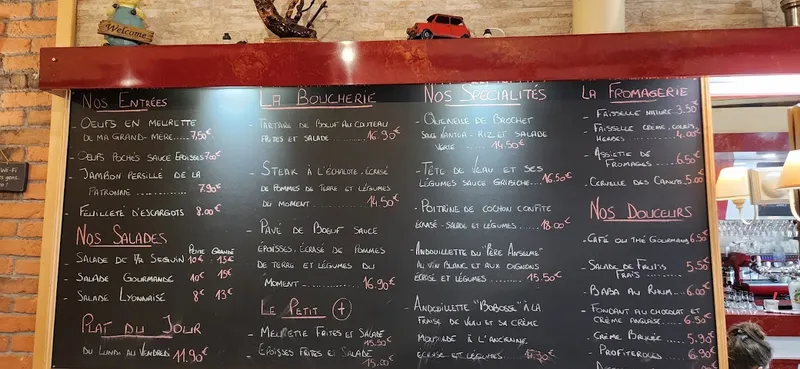 Welcome
Nos Entrées
- Oeufs en Meurette
de ma Grand-Mère..... 7,50€
- Oeufs Pochés Sauce Epoisses 7.00€
- Jambon Persillé de la
Patronne .............. 7.90€
- Feuilleté d'Escargots 8.00€
Nos Salades
Petite Grande
- Salade de Mr Seguin 10€ - 15€
- Salade Gourmande 10€ 15€
- Salade Lyonnaise 8€ 13€
Plat du Jour
du Lundi au Vendredi 11.90€
La Boucherie
- Tartare de Boeuf au Couteau
Frites et Salade ...... 16.90€
- Steak à l'échalote, écrasé
de Pommes de Terre et Légumes
du Moment ............ 14.50€
- Pavé de Boeuf Sauce
Epoisses, écrasé de Pommes
de Terre et Légumes du
Moment ............ 16.90€
Le Petit +
- Meurette Frites et Salade
15.50€
- Epoisses Frites et Salade
15.00€
Nos Spécialités
- Quenelle de Brochet
Sauce Nantua - Riz et Salade
Verte ..... 14.50€
- Tête de Veau et ses
Légumes Sauce Gribiche... 16.50€
- Poitrine de Cochon Confite
écrasé - Salade et Légumes ..... 18.00€
- Andouillette du "Père Anselme"
au Vin Blanc et aux Oignons
écrasé et Légumes ...... 15.50€
- Andouillette "Bobosse" à la
Fraise de Veau et sa Crème
Moutarde à l'ancienne
écrasé et Légumes ..... 17.70€
La Fromagerie
- Faisselle Nature 3.50€
- Faisselle Crème, Coulis,
Herbes ......... 4.00€
- Assiette de
Fromages ..... 6.50€
- Cervelle des Canuts 5.00€
Nos Douceurs
- Café ou Thé Gourmand 6.50€
- Salade de Fruits
Frais ........ 5.50€
- Baba au Rhum ..... 6.00€
- Fondant au Chocolat et
Crème Anglaise ... 6.50€
- Crème Brulée 5.90€
- Profiteroles .... 6.90€